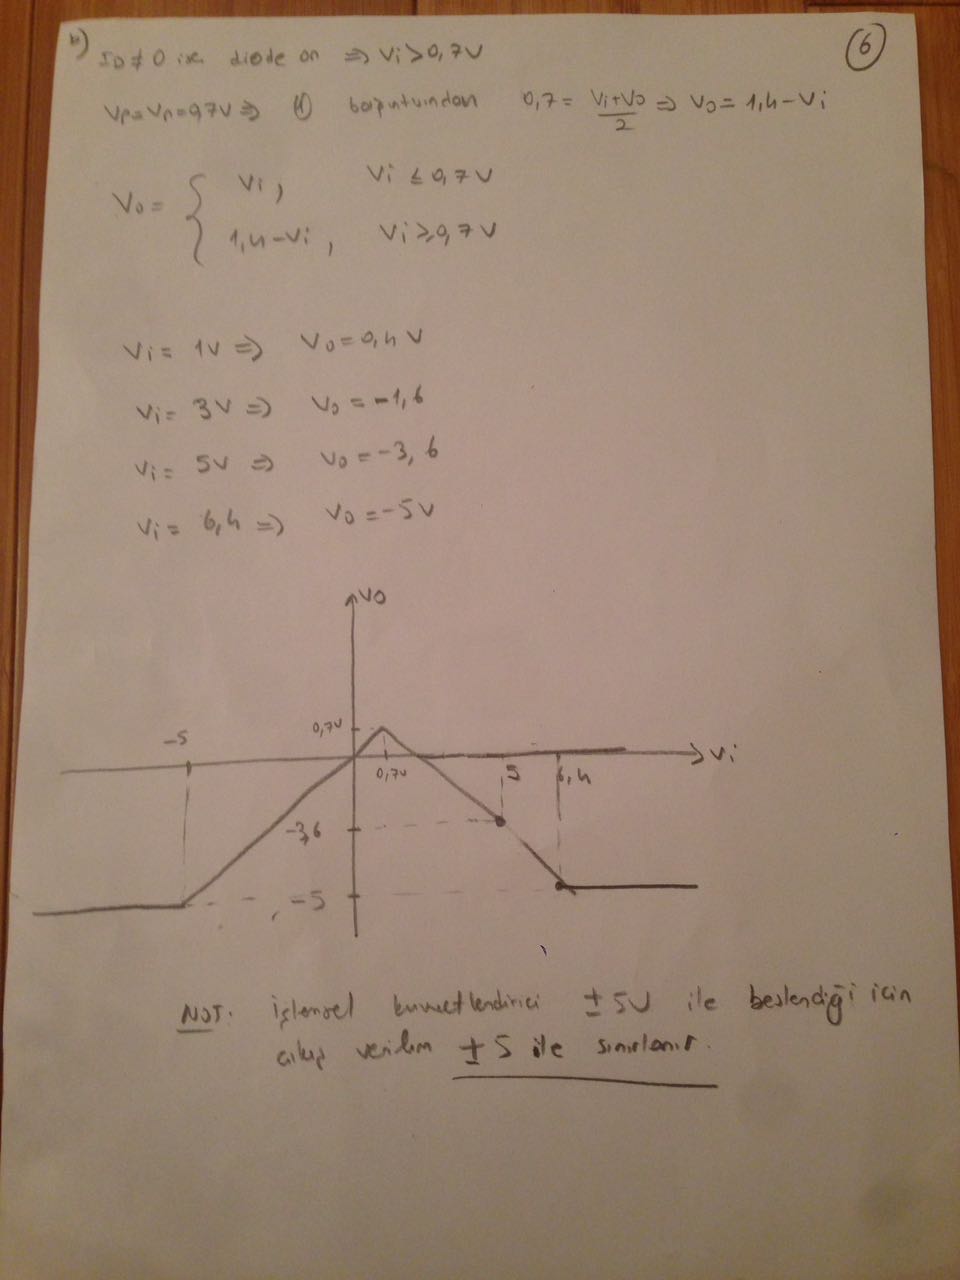 b) ID ≠ 0 ise diode on ⇒ Vi > 0,7V
6
Vp = Vn = 0,7V ⇒ (1) bağıntısından 0,7 = (Vi+Vo)/2 ⇒ Vo = 1,4 - Vi
Vo = { Vi, Vi ≤ 0,7V
1,4 - Vi, Vi ≥ 0,7V
Vi = 1V ⇒ Vo = 0,4V
Vi = 3V ⇒ Vo = -1,6
Vi = 5V ⇒ Vo = -3,6
Vi = 6,4 ⇒ Vo = -5V
Vo
0,7V
-5
Vi
0,7V 5 6,4
-3,6
-5
NOT: İşlemsel kuvvetlendirici ±5V ile beslendiği için
çıkış gerilim ±5 ile sınırlanır.